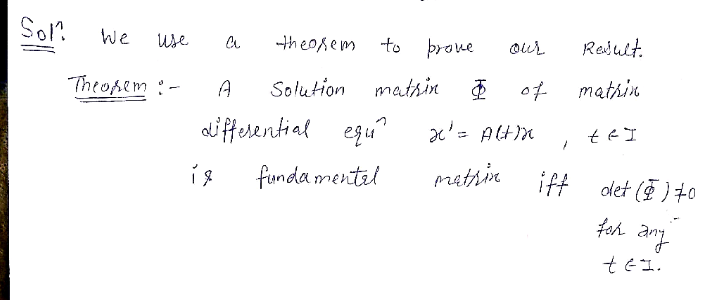 Solⁿ. We use a theorem to prove our Result.
Theorem :- A Solution matrix Φ of matrix
differential equⁿ x' = A(t)x , t ∈ I
is fundamental matrix iff det(Φ) ≠ 0
for any
t ∈ I.